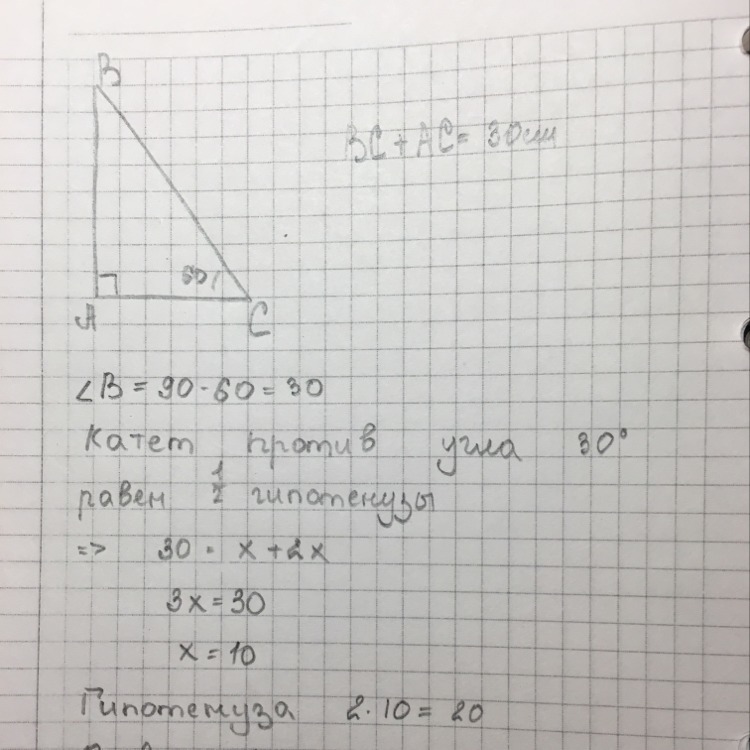 B
BC + AC = 30см
60
A
C
∠B = 90 - 60 = 30
Катет против угла 30°
равен 1/2 гипотенузы
=> 30 = x + 2x
3x = 30
x = 10
Гипотенуза 2 · 10 = 20